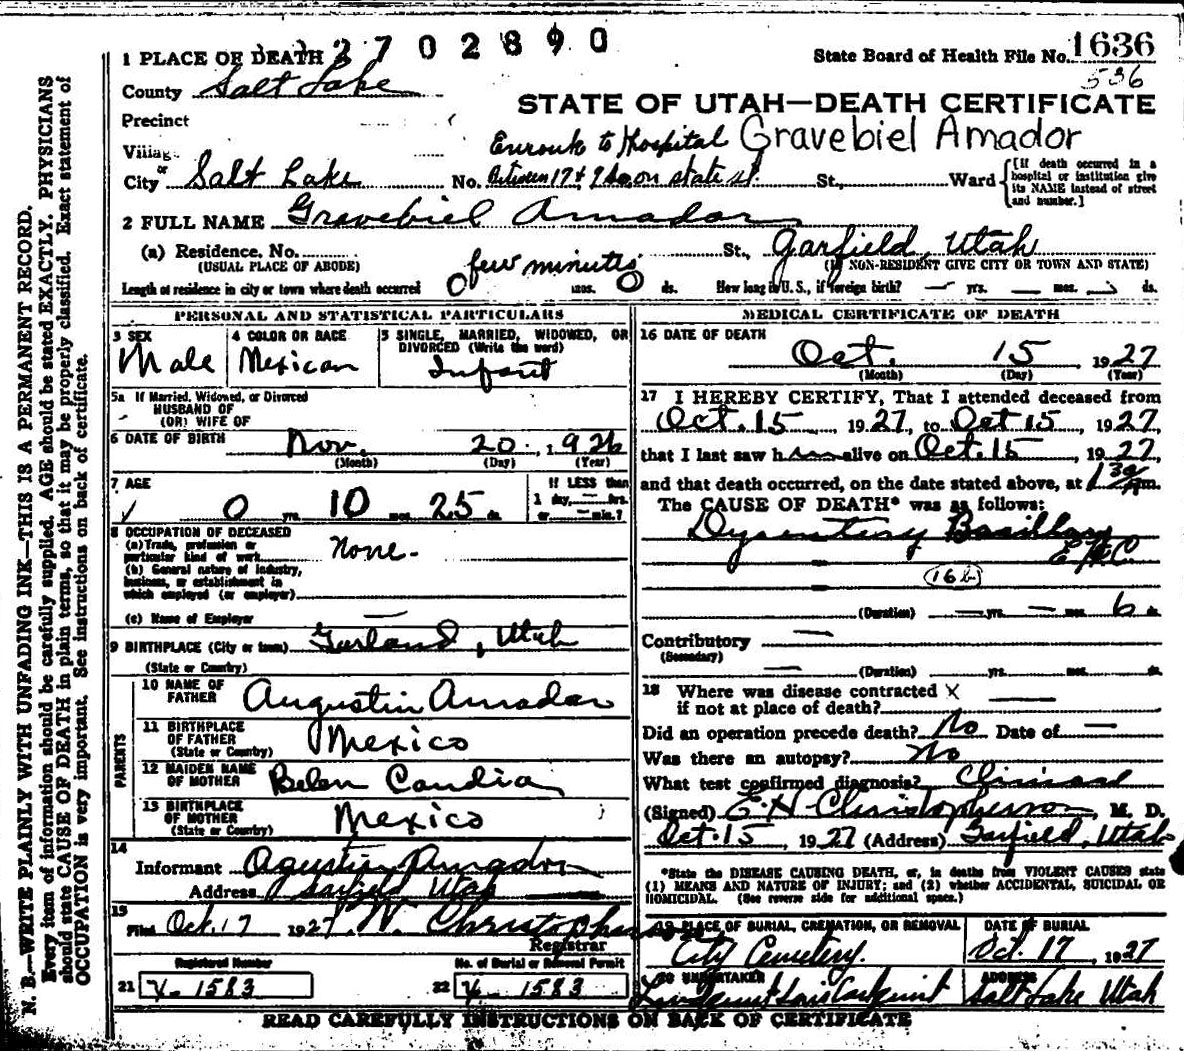 2702890
1 PLACE OF DEATH
State Board of Health File No. 1636
536
County Salt Lake
STATE OF UTAH—DEATH CERTIFICATE
Precinct
Enroute to Hospital Gravebiel Amador
Village
or
City Salt Lake No. Between 17 & 9 So. on state st. St., Ward
[If death occurred in a hospital or institution give its NAME instead of street and number.]
2 FULL NAME Gravebiel Amador
(a) Residence. No. St., Garfield, Utah
(USUAL PLACE OF ABODE) (IF NON-RESIDENT GIVE CITY OR TOWN AND STATE)
few minutes
Length of residence in city or town where death occurred 0 mos. 0 ds. How long in U.S., if foreign birth? — yrs. — mos. ds.
PERSONAL AND STATISTICAL PARTICULARS
3 SEX
Male
4 COLOR OR RACE
Mexican
5 SINGLE, MARRIED, WIDOWED, OR
DIVORCED (Write the word)
Infant
5a If Married, Widowed, or Divorced
HUSBAND OF
(OR) WIFE OF
6 DATE OF BIRTH Nov. 20, 1926
(Month) (Day) (Year)
7 AGE
0 yrs. 10 mos. 25 ds.
If LESS than
1 day,— hrs.
or — min.?
8 OCCUPATION OF DECEASED
(a) Trade, profession or
particular kind of work none.
(b) General nature of industry,
business, or establishment in
which employed (or employer)
(c) Name of Employer —
9 BIRTHPLACE (City or town) Garland, Utah
(State or Country)
PARENTS
10 NAME OF
FATHER Augustin Amador
11 BIRTHPLACE
OF FATHER Mexico
(State or Country)
12 MAIDEN NAME
OF MOTHER Belen Candia
13 BIRTHPLACE
OF MOTHER Mexico
(State or Country)
14
Informant Agustin Amador
Address Garfield Utah
15
Filed Oct. 17 1927. W. Christopherson
Registrar
Registered Number
21 V-1583
No. of Burial or Removal Permit
22 V-1583
MEDICAL CERTIFICATE OF DEATH
16 DATE OF DEATH
Oct. 15 1927
(Month) (Day) (Year)
17 I HEREBY CERTIFY, That I attended deceased from
Oct. 15, 1927, to Oct 15, 1927,
that I last saw him alive on Oct. 15, 1927,
and that death occurred, on the date stated above, at 1 30 A m.
The CAUSE OF DEATH* was as follows:
Dysentery Bacillary
E.H.C.
16b
(Duration) — yrs. — mos. 6 ds.
Contributory —
(Secondary)
— (Duration) yrs. mos. ds.
18 Where was disease contracted X
if not at place of death? —
Did an operation precede death? No Date of —
Was there an autopsy? No
What test confirmed diagnosis? Clinical
(Signed) E. H. Christopherson, M. D.
Oct. 15, 1927 (Address) Garfield, Utah
*State the DISEASE CAUSING DEATH, or, in deaths from VIOLENT CAUSES state
(1) MEANS AND NATURE OF INJURY; and (2) whether ACCIDENTAL, SUICIDAL OR
HOMICIDAL. (See reverse side for additional space.)
19 PLACE OF BURIAL, CREMATION, OR REMOVAL
City Cemetery.
DATE OF BURIAL
Oct. 17, 1927
20 UNDERTAKER
ADDRESS
Salt Lake Utah
READ CAREFULLY INSTRUCTIONS ON BACK OF CERTIFICATE
N. B.—WRITE PLAINLY WITH UNFADING INK—THIS IS A PERMANENT RECORD.
Every item of information should be carefully supplied. AGE should be stated EXACTLY. PHYSICIANS
should state CAUSE OF DEATH in plain terms, so that it may be properly classified. Exact statement of
OCCUPATION is very important. See instructions on back of certificate.